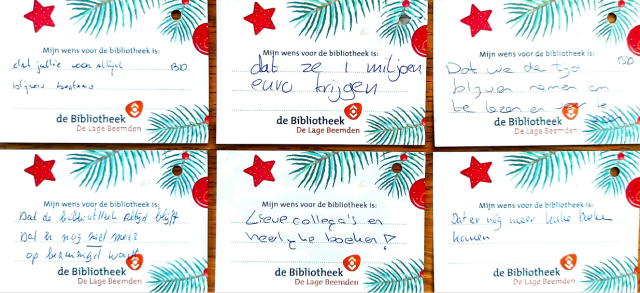 Mijn wens voor de bibliotheek is:
dat jullie voor altijd
blijven bestaan
de Bibliotheek
De Lage Beemden
Mijn wens voor de bibliotheek is:
dat ze 1 miljoen
euro krijgen
de Bibliotheek
De Lage Beemden
Mijn wens voor de bibliotheek is:
Dat we de tijd
blijven nemen om
te lezen en voor te
de Bibliotheek
De Lage Beemden
Mijn wens voor de bibliotheek is:
Dat de bibliotheek altijd blijft
Dat er nog niet meer
op bezuinigd wordt
de Bibliotheek
De Lage Beemden
Mijn wens voor de bibliotheek is:
Lieve collega's en
heerlijke boeken!
de Bibliotheek
De Lage Beemden
Mijn wens voor de bibliotheek is:
Dat er nog meer leuke boeken
komen
de Bibliotheek
De Lage Beemden